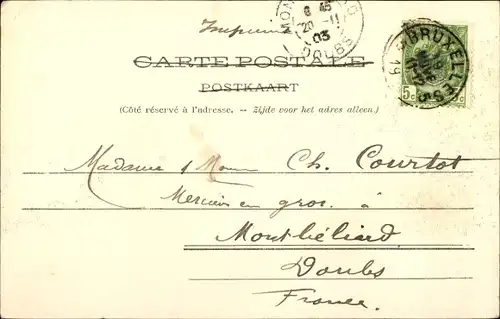 Imprimé
MONTBÉLIARD
8 45
20 -11
03
DOUBS
BRUXELLES
5c 5c
CARTE POSTALE
POSTKAART
(Côté réservé à l'adresse. -- Zijde voor het adres alleen.)
Madame & Mons Ch. Courtot
Mercier en gros. à
Montbéliard
Doubs
France.